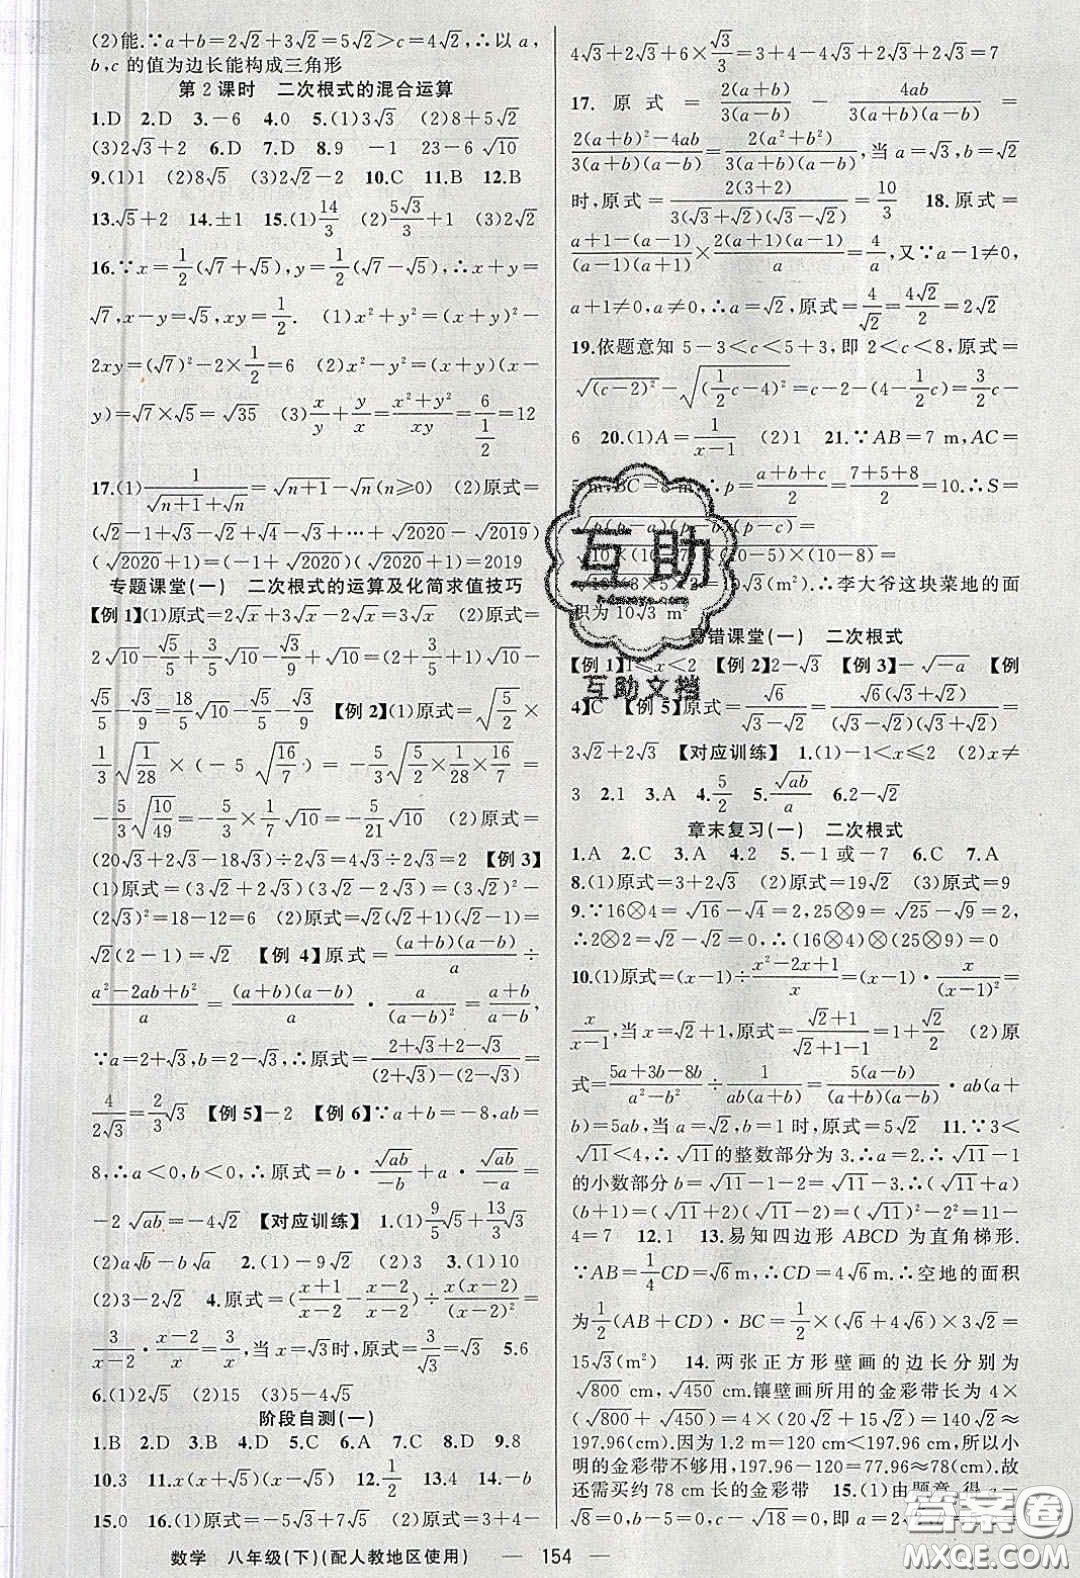 (2)能.∵a+b=2√2+3√2=5√2>c=4√2,∴以a,
b,c的值为边长能构成三角形
第2课时 二次根式的混合运算
1.D 2.D 3.-6 4.0 5.(1)3√3 (2)8+5√2
(3)2√3+2 6.D 7.D 8.9 -1 23-6√10
9.(1)1 (2)8√5 (3)2√2-2 10.C 11.B 12.B
13.√5+2 14.±1 15.(1)14/3 (2)5√3/3+1 (3)2√2
16.∵x=1/2(√7+√5),y=1/2(√7-√5),∴x+y=
√7,x-y=√5,xy=1/2. (1)x²+y²=(x+y)²-
2xy=(√7)²-2×1/2=6 (2)x²-y²=(x+y)(x-
y)=√7×√5=√35 (3)x/y+y/x=(x²+y²)/xy=6/(1/2)=12
17.(1)1/(√(n+1)+√n)=√(n+1)-√n(n≥0) (2)原式=
(√2-1+√3-√2+√4-√3+…+√2020-√2019)
(√2020+1)=(-1+√2020)(√2020+1)=2019
专题课堂(一) 二次根式的运算及化简求值技巧
【例1】(1)原式=2√x+3√x-2√x=3√x (2)原式=
2√10-√5/5+√5/3-√3/9=18/5√10-
√5/5-√3/9 【例2】(1)原式=√(5/2)×
1/3√(1/28)×(-5√(16/7))=-1/3×5√(5/2×1/28×16/7)=
-5/3√(10/49)=-5/3×1/7√10=-5/21√10 (2)原式=
(20√3+2√3-18√3)÷2√3=4√3÷2√3=2 【例3】
(1)原式=(3√2+2√3)(3√2-2√3)=(3√2)²-
(2√3)²=18-12=6 (2)原式=√2(√2+1)(√2-1)=
√2(2-1)=√2 【例4】原式=(a+b)(a-b)/a÷
(a²-2ab+b²)/a=(a+b)(a-b)/a·a/(a-b)²=(a+b)/(a-b),
∵a=2+√3,b=2-√3,∴原式=(2+√3+2-√3)/((2+√3)-(2-√3))=
4/2√3=2/3√3 【例5】-2 【例6】∵a+b=-8,ab=
8,∴a<0,b<0,∴原式=b·√ab/-b+a·√ab/-a=
-2√ab=-4√2 【对应训练】1.(1)9/5√5+13/3√3
(2)a√b-b√a 2.(1)-9√2 (2)3 3.(1)10
(2)3-2√2 4.原式=((x+1)/(x-2)-(x-2)/(x-2))÷x(x-2)/(x-2)²=
3/(x-2)·(x-2)/x=3/x,当x=√3时,原式=3/√3=√3 5.6
6.(1)2√5 (2)15 (3)5-4√5
阶段自测(一)
1.B 2.D 3.B 4.D 5.C 6.A 7.C 8.D 9.8
10.3 11.x(x+√5)(x-√5) 12.1/2 13.4 14.-b
15.0 16.(1)原式=-5√3+7√5 (2)原式=3+4-
4√3+2√3+6×√3/3=3+4-4√3+2√3+2√3=7
17.原式=2(a+b)/3(a-b)-4ab/3(a+b)(a-b)=
(2(a+b)²-4ab)/3(a+b)(a-b)=2(a²+b²)/3(a+b)(a-b),当a=√3,b=√2
时,原式=2(3+2)/3(√3+√2)(√3-√2)=10/3 18.原式=
(a+1-(a-1))/(a-1)(a+1)×2(a+1)(a-1)/a=4/a,又∵a-1≠0,
a+1≠0,a≠0,∴a=√2,原式=4/√2=4√2/2=2√2
19.依题意知5-3<c<5+3,即2<c<8,原式=
√(c-2)²-√(1/2c-4)²=c-2-(4-1/2c)=3/2c-
6 20.(1)A=1/(x-1) (2)1 21.∵AB=7 m,AC=
5 m,BC=8 m,∴p=(a+b+c)/2=(7+5+8)/2=10.∴S=
√p(p-a)(p-b)(p-c)=
√10×(10-7)×(10-5)×(10-8)=
√10×3×5×2=10√3(m²).∴李大爷这块菜地的面
积为10√3 m²
易错课堂(一) 二次根式
【例1】1≤x<2 【例2】2-√3 【例3】-√-a 【例
4】C 【例5】原式=√6/(√3-√2)=√6(√3+√2)/(√3-√2)(√3+√2)=
3√2+2√3 【对应训练】1.(1)-1<x≤2 (2)x≠
3 2.1 3.A 4.5/2 5.√ab/a 6.2-√2
章末复习(一) 二次根式
1.A 2.C 3.A 4.2 5.-1或-7 6.C 7.A
8.(1)原式=3+2√2 (2)原式=19√2 (3)原式=9
9.∵16⊗4=√16-√4=2,25⊗9=√25-√9=2,
∴2⊗2=√2-√2=0,∴(16⊗4)⊗(25⊗9)=0
10.(1)原式=(x-1)÷(x²-2x+1)/x=(x-1)·x/(x-1)²=
x/(x-1),当x=√2+1,原式=(√2+1)/(√2+1-1)=1+√2/2 (2)原
式=(5a+3b-8b)/(a²-b²)÷1/ab(a+b)=5(a-b)/(a+b)(a-b)·ab(a+
b)=5ab,当a=√2,b=1时,原式=5√2 11.∵3<
√11<4,∴√11的整数部分为3.∴a=2.∴√11-1
的小数部分b=√11-1-2=√11-3.∴(√11+a)
(b+1)=(√11+2)(√11-2)=(√11)²-2²=11-
4=7 12.1 13.易知四边形ABCD为直角梯形.
∵AB=1/4CD=√6 m,∴CD=4√6 m.∴空地的面积
为1/2(AB+CD)·BC=1/2×(√6+4√6)×2√2=
15√3(m²) 14.两张正方形壁画的边长分别为
√800 cm,√450 cm.镶壁画所用的金彩带长为4×
(√800+√450)=4×(20√2+15√2)=140√2≈
197.96(cm).因为1.2 m=120 cm<197.96 cm,所以小
明的金彩带不够用,197.96-120=77.96≈78(cm).故
还需买约78 cm长的金彩带 15.(1)由题意,得a-
数学 八年级(下)(配人教地区使用) — 154 —
互助
互助文档
答案圈
MXQE.COM